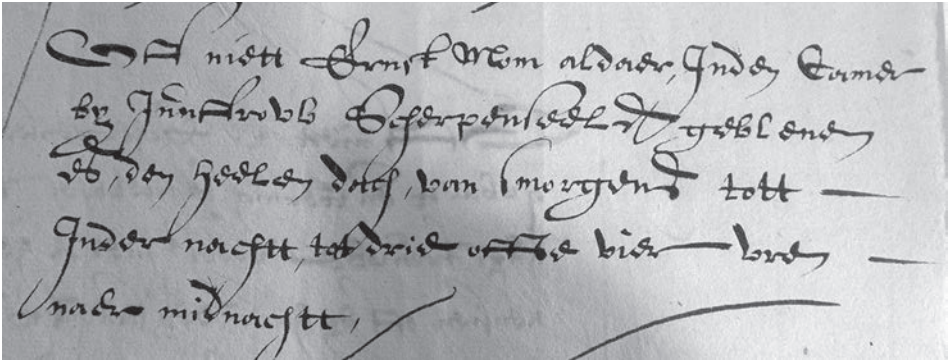 Off niett Ernst Mom aldaer, Inden Camer
by Juuffrouv Scherpenseel gebleuen
es, den heelen dach, van smorgens tott
Inder nachtt, tot drie offte vier vren
naer midnachtt,